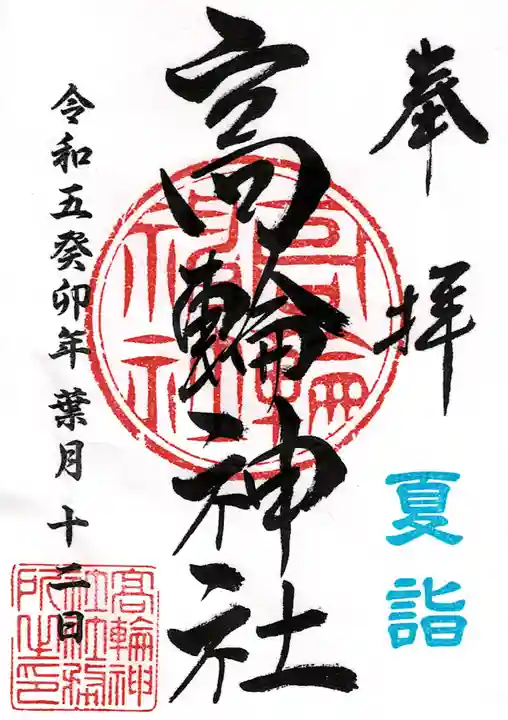 奉拝
夏詣
高輪神社
令和五癸卯年葉月十二日
高輪神社
高輪神
社社務
所之印